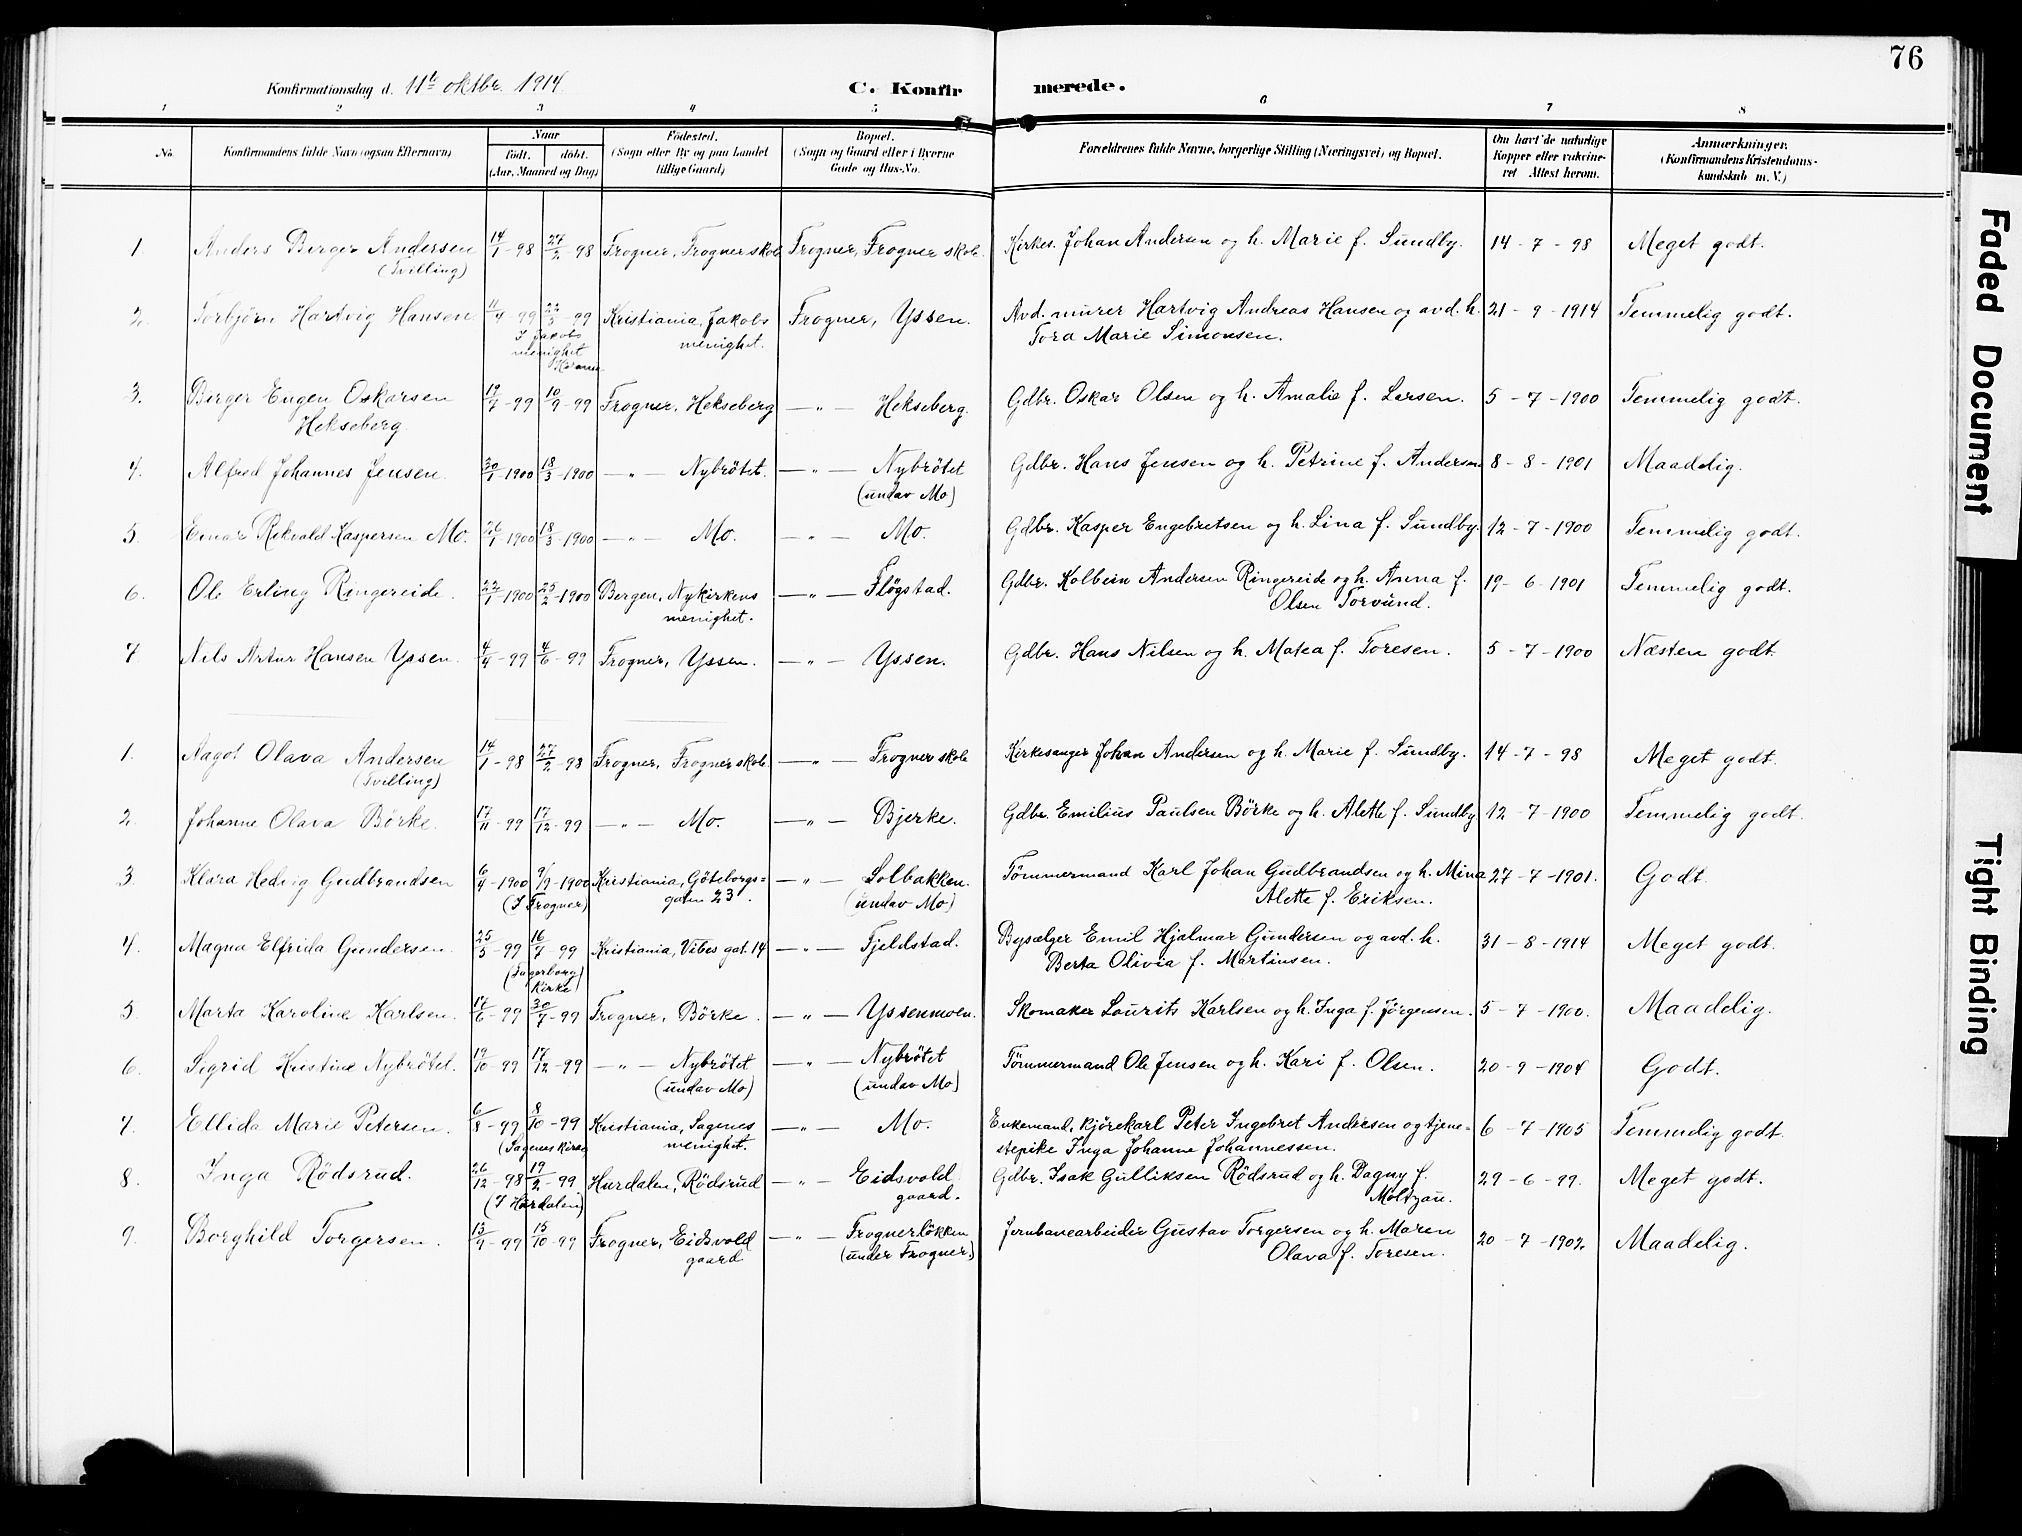 76
Konfirmationsdag d. 11te oktbr. 1914. C. Konfirmerede.
1 2 3 4 5 6 7 8
No. Konfirmandens fulde Navn (ogsaa Efternavn) Naar født. døbt. (Aar, Maaned og Dag) Fødested. (Sogn eller By og paa Landet tillige Gaard) Bopæl. (Sogn og Gaard eller i Byerne Gade og Hus-No. Forældrenes fulde Navne, borgerlige Stilling (Næringsvei) og Bopæl. Om havt de naturlige Kopper eller vakcineret Attest herom. Anmærkninger. (Konfirmandens Kristendomskundskab m. V.)
1. Anders Birger Andersen 14/1-98 27/2-98 Frogner, Frogner skole Frogner, Frogner skole. Kirkes. Johan Andersen og h. Marie f. Sundby. 14-7-98 Meget godt.
(Tvilling)
2. Torbjörn Hartvig Hansen 11/4-99 22/5-99 Kristiania, Jakobs Frogner, Yssen. Avd. murer Hartvig Andreas Hansen og avd. h. 21-9-1914 Temmelig godt.
I Jakobs menighet menighet. Tora Marie Simonsen.
3. Birger Eugen Oskarsen 19/7-99 10/9-99 Frogner, Hekseberg —„— Hekseberg. Gdbr. Oskar Olsen og h. Amalie f. Larsen. 5-7-1900 Temmelig godt.
Hekseberg
4. Alfred Johannes Jensen. 30/1-1900 18/3-1900 —„— Nybrötet. —„— Nybrötet Gdbr. Hans Jensen og h. Petrine f. Andersen 8-8-1901 Maadelig.
(undav Mo)
5. Einar Rikvald Kaspersen Mo. 26/1-1900 18/3-1900 —„— Mo. —„— Mo. Gdbr. Kasper Engebretsen og h. Lina f. Sundby. 12-7-1900 Temmelig godt.
6. Ole Erling Ringereide. 22/1-1900 25/2-1900 Bergen, Nykirkens —„— Flögstad. Gdbr. Kolbein Andersen Ringereide og h. Anna f. 19-6-1901 Temmelig godt.
menighet. Olsen Torvund.
7 Nils Artur Hansen Yssen. 4/4-99 4/6-99 Frogner, Yssen. —„— Yssen. Gdbr. Hans Nilsen og h. Matea f. Toresen. 5-7-1900 Næsten godt.
1. Aagot Olava Andersen 14/1-98 27/2-98 Frogner, Frogner skole —„— Frogner skole Kirkesanger Johan Andersen og h. Marie f. Sundby. 14-7-98 Meget godt.
(Tvilling)
2. Johanne Olava Börke. 17/11-99 17/12-99 —„— Mo. —„— Bjerke. Gdbr. Emilius Paulsen Börke og h. Alette f. Sundby 12-7-1900 Temmelig godt.
3. Klara Hedvig Gudbrandsen 6/4-1900 9/9-1900 Kristiania, Göteborgs= —„— Solbakken. Tömmermand Karl Johan Gudbrandsen og h. Mina 27-7-1901. Godt.
(I Frogner) gaten 23. (undav Mo) Alette f. Eriksen.
4. Magna Elfrida Gundersen. 25/5-99 16/7-99 Kristiania, Vibes gat. 14 —„— Fjeldstad. Bysælger Emil Hjalmar Gundersen og avd. h. 31-8-1914 Meget godt.
(Fagerborg kirke) Berta Olivia f. Martinsen.
5. Marta Karoline Karlsen. 17/6-99 30/7-99 Frogner, Börke. —„— Yssenmoen. Skomaker Laurits Karlsen og h. Inga f. Jörgensen. 5-7-1900. Maadelig.
6. Sigrid Kristine Nybrötet. 19/10-99 17/12-99 —„— Nybrötet —„— Nybrötet Tömmermand Ole Jensen og h. Kari f. Olsen. 20-9-1904 Godt.
(undav Mo) (undav Mo)
7. Ellida Marie Petersen. 6/8-99 8/10-99 Kristiania, Sagenes —„— Mo. Enkemand, kjörekarl Peter Ingebret Andersen og tjene= 6-7-1905 Temmelig godt.
(Sagenes kirke) menighet. stepike Inga Johanne Johannessen.
8. Inga Rödsrud. 26/12-98 19/2-99 Hurdalen, Rödsrud —„— Eidsvold Gdbr. Isak Gulliksen Rödsrud og h. Dagny f. 29-6-99. Meget godt.
(I Hurdalen) gaard. Moltzau.
9. Borghild Torgersen. 13/9-99 15/10-99 Frogner, Eidsvold —„— Frognerlökken Jernbanearbeider Gustav Torgersen og h. Maren 20-7-1902. Maadelig.
gaard (under Frogner) Olava f. Toresen.
Faded Document
Tight Binding